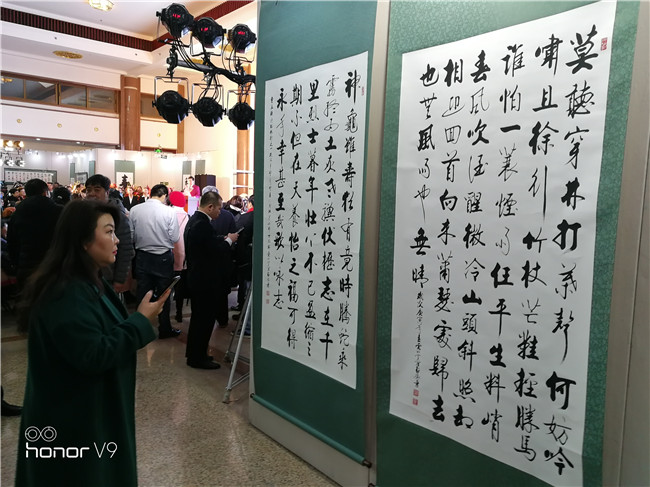 莫聽穿林打葉聲何妨吟
嘯且徐行竹杖芒鞋輕勝馬
誰怕一蓑煙雨任平生料峭
春風吹酒醒微冷山頭斜照却
相迎回首向來蕭瑟處歸去
也無風雨也無晴
神龜雖壽猶有竟時騰蛇乘
霧終为土灰老驥伏櫪志在千
里烈士暮年壯心不已盈縮之
期不但在天養怡之福可得
永年幸甚至哉歌以詠志
honor V9